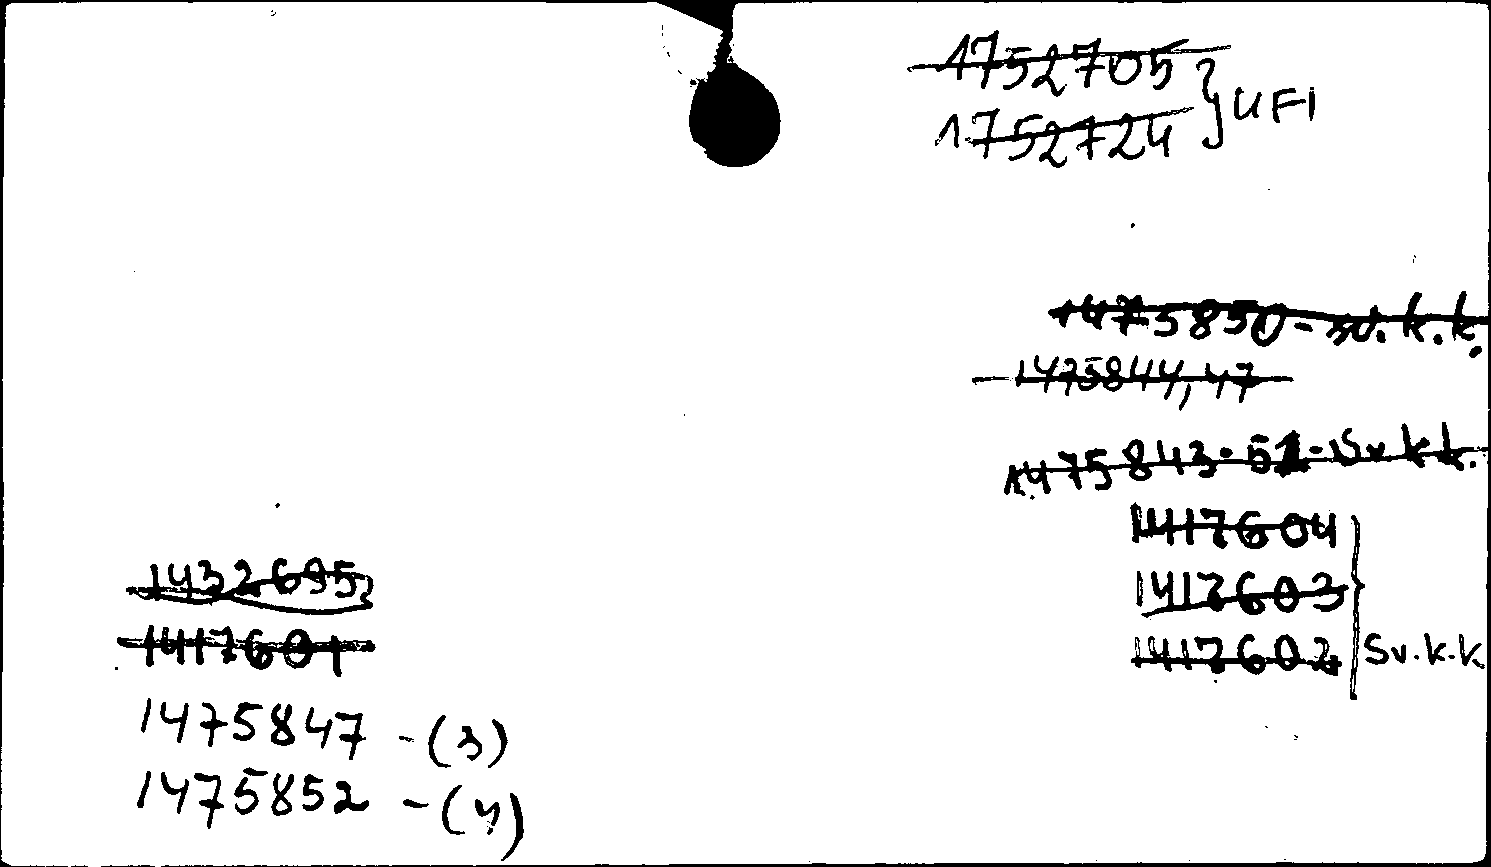 1752705
1752724 } UFI
1475850 - sv. k. k.
1475844, 47
1475843. 51 - Sv k k.
1417604
1417603
1417602 } Sv. k. k
1432695
1417601
1475847 - (3)
1475852 - (4)